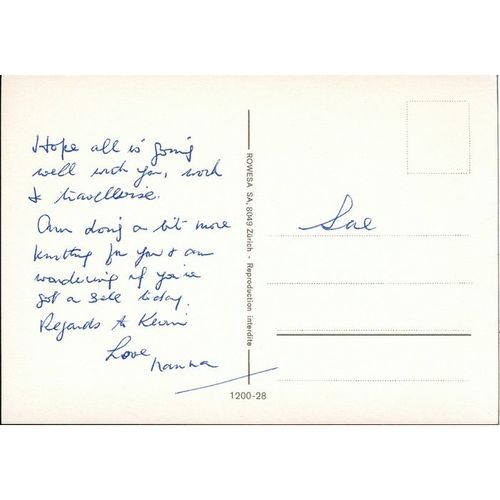 Hope all is going
well with you, work
& travelwise.
Am doing a bit more
knitting for you & am
wondering if you've
got a sale today.
Regards to Kevin
Love
Nanna
ROWESA SA, 8049 Zürich - Reproduction interdite
Sae
1200-28